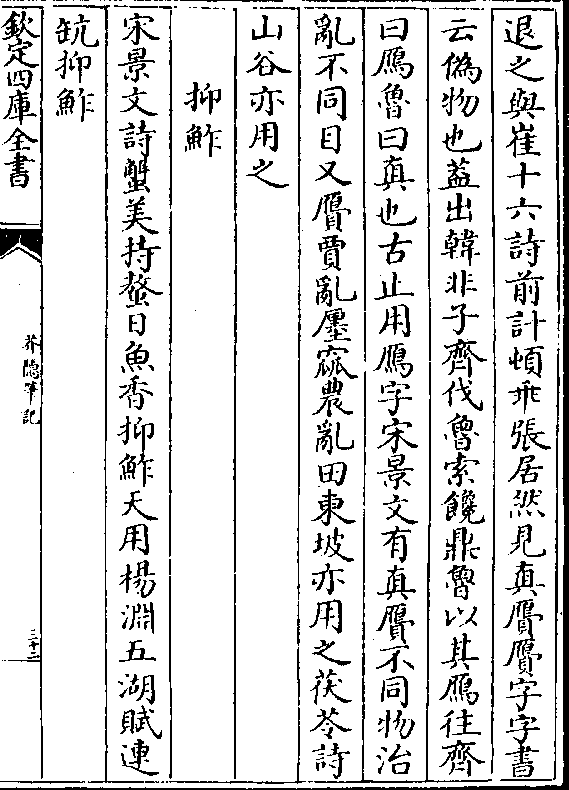 退之與崔十六詩前計頓乖張居然見真贋贋字字書
云偽物也蓋出韓非子齊伐魯索饞鼎魯以其鴈往齊
曰鴈魯曰真也古止用鴈字宋景文有真贋不同物治
亂不同目又贋賈亂廛窳農亂田東坡亦用之茯苓詩
山谷亦用之
抑鮓
宋景文詩蟹美持螯日魚香抑鮓天用楊淵五湖賦連
缸抑鮓
欽定四庫全書
芥隱筆記
三十二